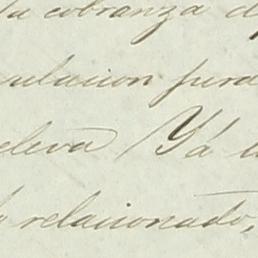 la cobranza d
culacion para
eleva Ya
lo relacionado,